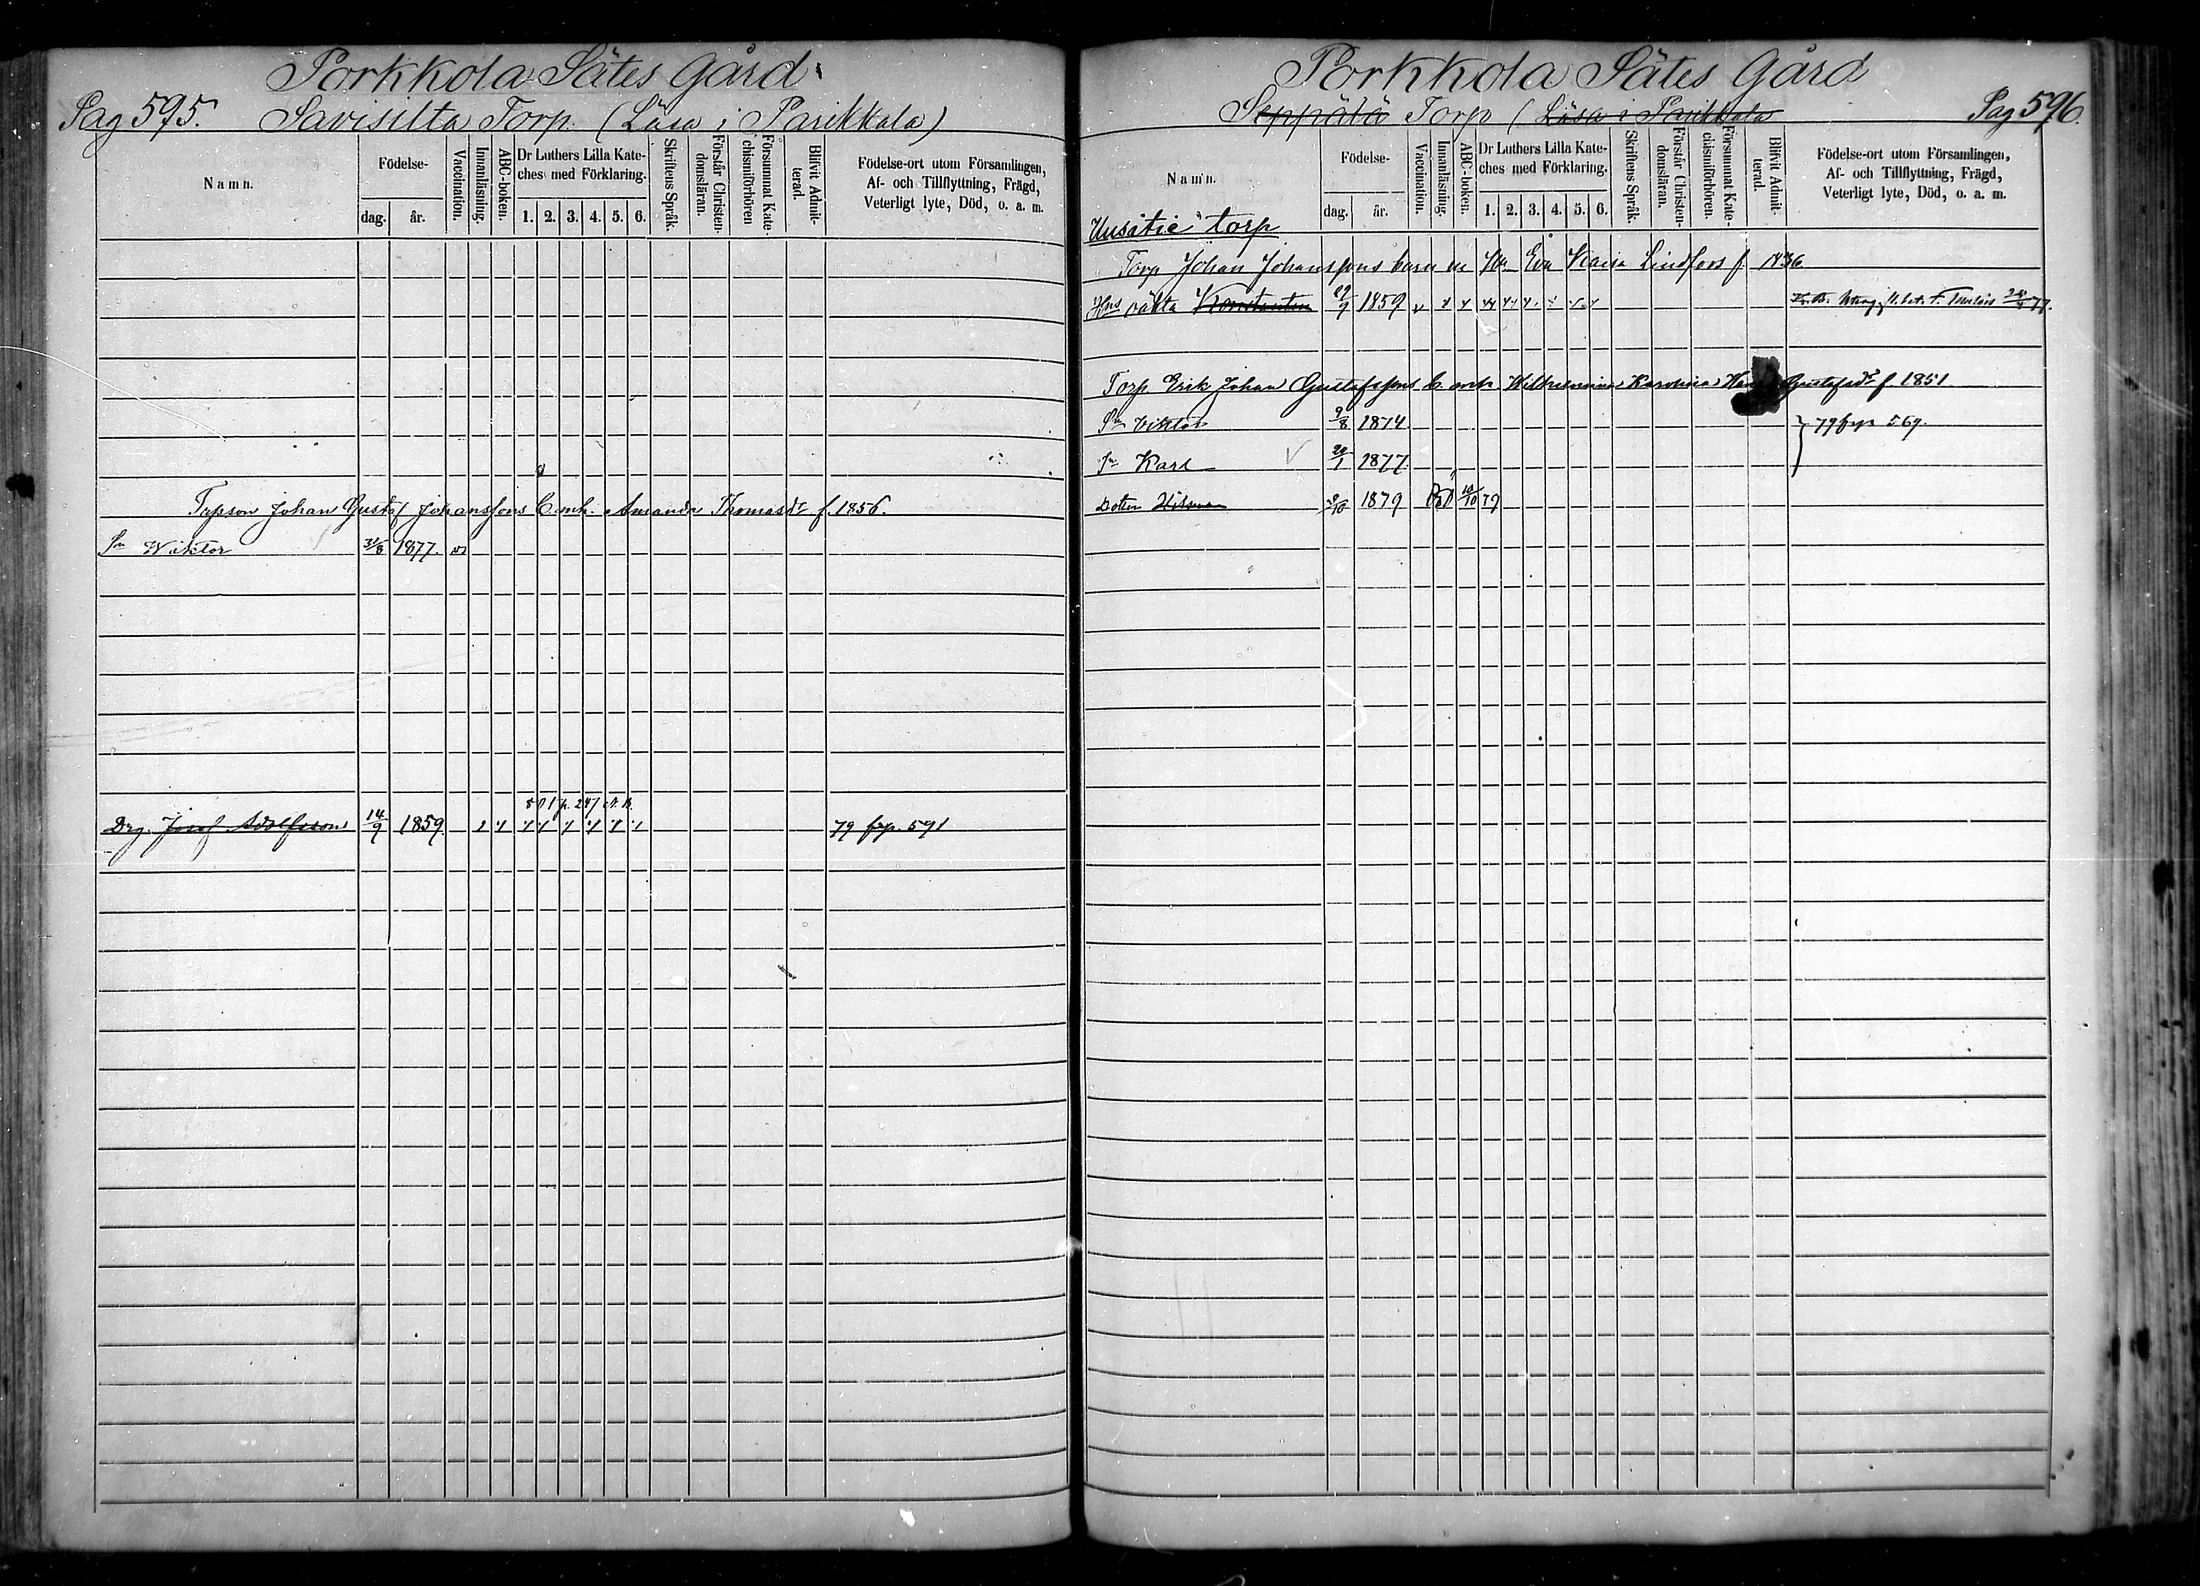 Porkkola Sätes Gård
Pag 595. Savisilta Torp. (Läsa i Parikkala)
Namn.
Födelse-
dag.
år.
Vaccination.
Innanläsning.
ABC-boken.
Dr Luthers Lilla Kate-
ches med Förklaring.
1. 2. 3. 4. 5. 6.
Skriftens Språk.
Förstår Christen-
domsläran.
Försummat Kate-
chismiförhören
Blifvit Admit-
terad.
Födelse-ort utom Församlingen,
Af- och Tillflyttning, Frägd,
Veterligt lyte, Död, o. a. m.
Johan Gustaf Johanssons b. m. h. Amanda Thomasdr f. 1856.
Sn Wiktor 31/8 1877. v
501 p. 247
Drg. Josef Adolfsson 14/9 1859. 79 frp. 591
Porkkola Sätes Gård
Seppälä Torp (Läsa i Parikkala Pag 596.
Namn.
Födelse-
dag.
år.
Vaccination.
Innanläsning.
ABC-boken.
Dr Luthers Lilla Kate-
ches med Förklaring.
1. 2. 3. 4. 5. 6.
Skriftens Språk.
Förstår Christen-
domsläran.
Försummat Kate-
chismiförhören.
Blifvit Admit-
terad.
Födelse-ort utom Församlingen,
Af- och Tillflyttning, Frägd,
Veterligt lyte, Död, o. a. m.
Uusitie torp
Torp Johan Johanssons barn m Eva Kaisa Lindfors f 1836
Konstantin 1859 v
Torp. Erik Johan Gustafssons b. m h Wilhelmina Karolina Gustafsdr f. 1851
Sn Viktor 9/8 1874 } 79 frp 569.
Sn Karl 1877.
Dotter Hilma 1879 Död 10/10 79